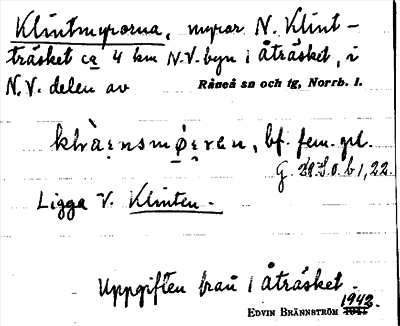 Klintmyrorna, myror N. Klint-
träsket ca 4 km N.V. byn i Åträsket, i
N.V. delen av Råneå sn och tg, Norrb. l.
bf. fem. pl.
G. b 1, 22.
Ligga V. Klinten.
Uppgiften från i Åträsket.
1942.
EDVIN BRÄNNSTRÖM 1941